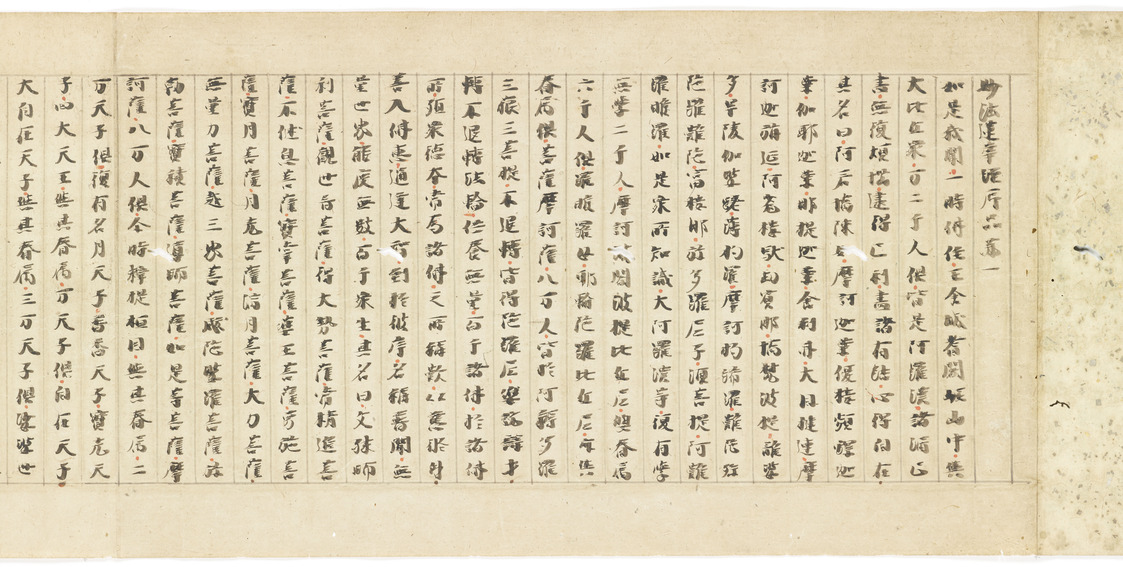 妙法蓮華經序品第一
如是我聞一時佛住王舍城耆闍崛山中與
大比丘眾万二千人俱皆是阿羅漢諸漏已
盡無復煩惱逮得已利盡諸有結心得自在
其名曰阿若憍陳如摩訶迦葉優樓頻螺迦
葉伽耶迦葉那提迦葉舍利弗大目揵連摩
訶迦旃延阿㝹樓馱劫賓那憍梵波提離婆
多畢陵伽婆蹉薄拘羅摩訶拘絺羅難陀孫
陀羅難陀富樓那弥多羅尼子須菩提阿難
羅睺羅如是眾所知識大阿羅漢等復有學
無學二千人摩訶波闍波提比丘尼與眷屬
六千人俱羅睺羅母耶輸陀羅比丘尼亦與
眷屬俱菩薩摩訶薩八万人皆於阿耨多羅
三藐三菩提不退轉皆得陀羅尼樂說辯才
轉不退轉法輪供養無量百千諸佛於諸佛
所殖眾德本常為諸佛之所稱歎以慈脩身
善入佛慧通達大智到於彼岸名稱普聞無
量世界能度無數百千眾生其名曰文殊師
利菩薩觀世音菩薩得大勢菩薩常精進菩
薩不休息菩薩寶掌菩薩藥王菩薩勇施菩
薩寶月菩薩月光菩薩滿月菩薩大力菩薩
無量力菩薩越三界菩薩颰陀婆羅菩薩弥
勒菩薩寶積菩薩導師菩薩如是等菩薩摩
訶薩八万人俱尒時釋提桓因與其眷屬二
万天子俱復有名月天子普香天子寶光天
子四大天王與其眷屬万天子俱自在天子
大自在天子與其眷屬三万天子俱娑婆世